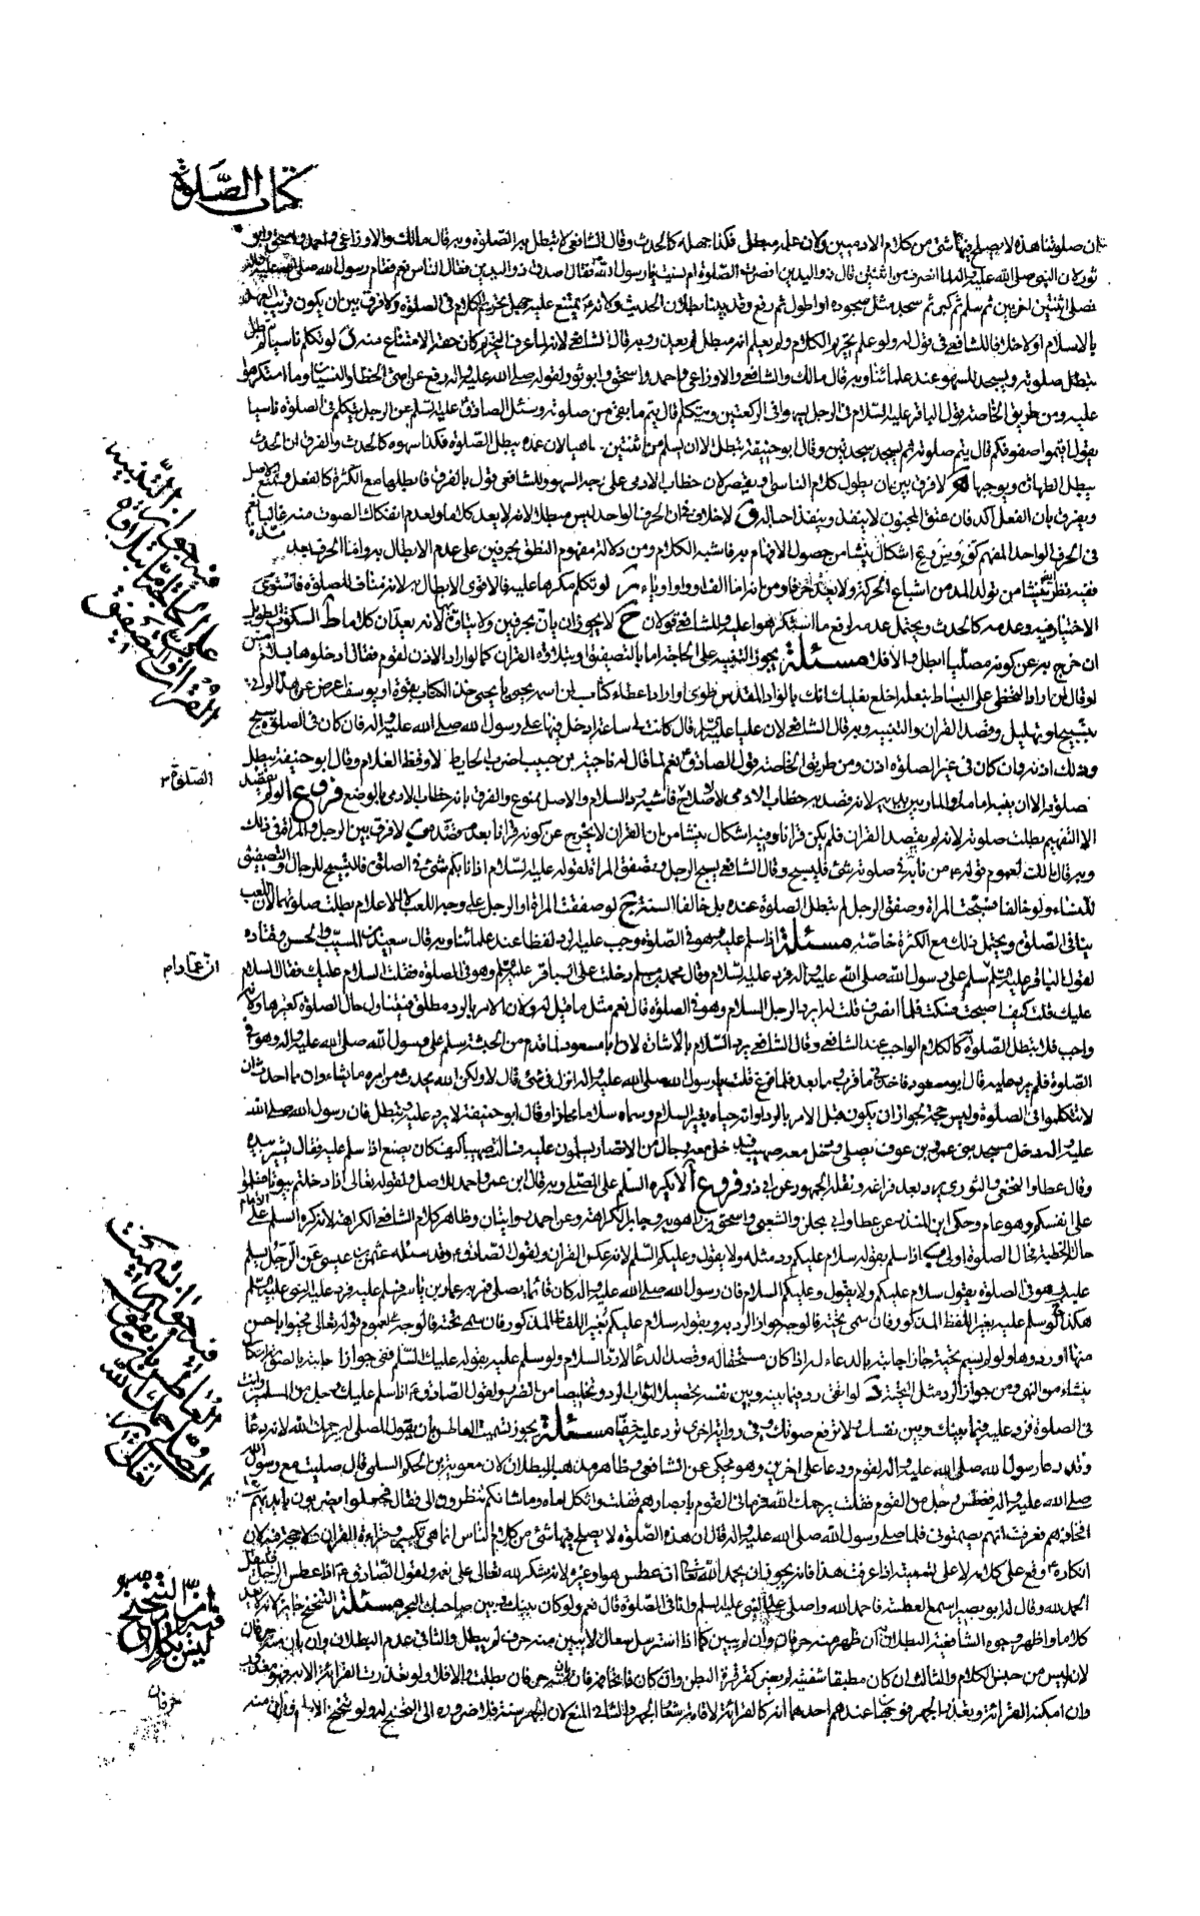 كتاب الصلوة
ان صلوتنا هذه لا يصلح فيها شئ من كلام الادميين ولان عمده مبطل فكذا جهله كالحدث وقال الشافعي لا تبطل به الصلوة وبه قال مالك والاوزاعي واحمد واسحق وابو
ثور لان النبي صلى الله عليه واله لما انصرف من اثنتين قال ذو اليدين اقصرت الصلوة ام نسيت يا رسول الله فقال اصدق ذو اليدين فقال الناس نعم فقام رسول الله صلى الله عليه واله
فصلى اثنتين اخريين ثم سلم ثم كبر ثم سجد مثل سجوده او اطول ثم رفع وقد بينا بطلان الحديث ولانه يمتنع عليه جهل تحريم الكلام في الصلوة ولا فرق بين ان يكون قريب العهد
بالاسلام او لا خلافا للشافعي في قول له ولو علم تحريم الكلام ولم يعلم انه مبطل لم يعذر وبه قال الشافعي لانه لما عرف التحريم كان حقه الامتناع منه لو تكلم ناسيا لم تبطل
تبطل صلوته ويسجد للسهو عند علمائنا وبه قال مالك والشافعي والاوزاعي واحمد واسحق وابو ثور لقوله صلى الله عليه واله رفع عن امتي الخطأ والنسيان وما استكرهوا
عليه ومن طريق الخاصة قول الباقر عليه السلام في الرجل يسهو في الركعتين ويتكلم قال يتم ما بقي من صلوته وسئل الصادق عليه السلم عن الرجل يتكلم في الصلوة ناسيا
يقول اقيموا صفوفكم قال يتم صلوته ثم يسجد سجدتين وقال ابو حنيفة تبطل الا ان يسلم من اثنتين ساهيا لان عمده يبطل الصلوة فكذا سهوه كالحدث والفرق ان الحدث
يبطل الطهارة ويوجبها لا فرق بين ان يطول كلام الناسي او يقصر لان خطاب الادمي على وجه السهو وللشافعي قول بالفرق فابطلها مع الكثرة كالفعل ونمنع الاصل
ويفرق بان الفعل آكد فان عتق المجنون لا ينفذ وينفذ احباله لا خلاف في ان الحرف الواحد ليس مبطلا لانه لا يعد كلاما ولعدم انفكاك الصوت منه غالبا نعم
في الحرف الواحد المفهم كق وش وع اشكال ينشا من حصول الافهام به فاشبه الكلام ومن دلالة مفهوم النطق بحرفين على عدم الابطال به واما الحرف بعد مدة
ففيه نظر ينشا من تولد المد من اشباع الحركة ولا يعد حرفا ومن انه اما الف او واو او ياء لو تكلم مكرها عليه فالاقوى الابطال به لانه مناف للصلوة فاستوى
الاختيار فيه وعدمه كالحدث ويحتمل عدمه لرفع ما استكرهوا عليه وللشافعي قولان لا يجوز ان يان بحرفين ولا يتاوه بهما لانه يعد كلاما السكوت الطويل
ان خرج به عن كونه مصليا ابطل والا فلا مسئلة يجوز التنبيه على الحاجة اما بالتصفيق او بتلاوة القران كما لو اراد الاذن لقوم فقال ادخلوها بسلام آمنين
او قال لمن اراد التخطي على البساط بنعله اخلع نعليك انك بالواد المقدس طوى او اراد اعطاء كتاب لمن اسمه يحيى يا يحيى خذ الكتاب بقوة او يوسف اعرض عن هذا او اتي
بتسبيح او تهليل وقصد القران والتنبيه وبه قال الشافعي لان عليا عليه السلم قال كانت لي ساعة ادخل فيها على رسول الله صلى الله عليه واله فان كان في الصلوة سبح
وذلك اذنه وان كان في غير الصلوة اذن ومن طريق الخاصة قول الصادق نعم لما قال له ناجية بن حبيب اضرب الحايط لاوقظ الغلام وقال ابو حنيفة تبطل
صلوته الا ان ينبه امامه او المار بين يديه لانه قصد به خطاب الادمي لا لاصلاح فاشبه رد السلام والاصل ممنوع والفرق بانه خطاب الادمي بالوضع فروع ا لو لم يقصد
الا التفهيم بطلت صلوته لانه لم يقصد القران فلم يكن قرانا وفيه اشكال ينشا من ان القران لا يخرج عن كونه قرانا بعدم قصده ب لا فرق بين الرجل والمراة في ذلك
وبه قال مالك لعموم قوله من نابه شئ في صلوته شئ فليسبح وقال الشافعي يسبح الرجل وتصفق المراة لقوله عليه السلام اذا نابكم شئ في الصلوة فالتسبيح للرجال والتصفيق
للنساء ولو خالفا فسبحت المراة وصفق الرجل لم تبطل الصلوة عنده بل خالفا السنة ج لو صفقت المراة او الرجل على وجه اللعب لا للاعلام بطلت صلوتهما لان اللعب
ينافي الصلوة ويحتمل ذلك مع الكثرة خاصة مسئلة اذا سلم عليه وهو في الصلوة وجب عليه الرد لفظا عند علمائنا وبه قال سعيد بن المسيب والحسن وقتادة
لقول الباقر عليه السلم سلم على رسول الله صلى الله عليه واله فرد عليه السلام وقال محمد بن مسلم دخلت على الباقر عليه السلم وهو في الصلوة فقلت السلام عليك فقال السلام
عليك قلت كيف اصبحت فسكت فلما انصرف قلت له ايرد الرجل السلام وهو في الصلوة قال نعم مثل ما قيل له ولان الامر بالرد مطلق فيتناول حال الصلوة كغيرها ولانه
واجب فلا يبطل الصلوة كالكلام الواجب عند الشافعي وقال الشافعي يرد السلام بالاشارة لان ابا مسعود لما قدم من الحبشة سلم على رسول الله صلى الله عليه واله وهو في
الصلوة فلم يرد عليه قال ابو مسعود فاخذني ما قرب وما بعد فلما فرغ قلت يا رسول الله صلى الله عليه واله انزل في شئ قال لا ولكن الله يحدث من امره ما يشاء وان مما احدث ان
لا تتكلموا في الصلوة وليس حجة لجواز ان يكون قبل الامر بالرد او انه حياه بغير السلام وسماه سلاما مجازا وقال ابو حنيفة لا يرد عليه وتبطل فان رسول الله صلى الله
عليه واله دخل مسجد بني عمرو بن عوف يصلي ودخل معه صهيب فدخل معه رجال من الانصار يسلمون عليه فسالت صهيبا كيف كان يصنع اذا سلم عليه فقال يشير بيده
وقال عطا والنخعي والثوري يرد بعد فراغه ونقله الجمهور عن ابي ذر فروع ا لا يكره السلم على المصلي وبه قال ابن عمر واحمد للاصل ولقوله تعالى اذا دخلتم بيوتا فسلموا
على انفسكم وهو عام وحكى ابن المنذر عن عطا وابي مجلز والشعبي واسحق بن راهويه وجابر الكراهة وعن احمد روايتان وظاهر كلام الشافعي الكراهة لانه كره السلم على الامام
حالة الخطبة فحال الصلوة اولى ب اذا سلم بقوله سلام عليكم رد مثله ولا يقول وعليكم السلم لانه عكس القران ولقول الصادق وقد سئله عثمن بن عيسى عن الرجل يسلم
عليه وهو في الصلوة يقول سلام عليكم ولا يقول وعليكم السلام فان رسول الله صلى الله عليه واله كان قائما يصلي فمر به عمار بن ياسر فسلم عليه فرد عليه النبي عليه السلم
هكذا ج لو سلم عليه بغير اللفظ المذكور فان سمي تحية فالوجه جواز الرد به وبقوله سلام عليكم لعموم قوله تعالى فحيوا باحسن
منها او ردوها ولو لم يسم تحية جاز اجابته بالدعاء له اذا كان مستحقا له وقصد الدعاء لا رد السلام ولو سلم عليه بقوله عليك السلم ففي جواز اجابته بالصورة اشكال
ينشاء من النهي ومن جواز الرد مثل التحية د لو اتقى رد فيما بينه وبين نفسه تحصيلا لثواب الرد وتخليصا من الضرر لقول الصادق اذا سلم عليك رجل من المسلمين وانت
في الصلوة فرد عليه فيما بينك وبين نفسك ولا ترفع صوتك وفي رواية اخرى ترد عليه خفيا مسئلة يجوز تسميت العاطس بان يقول المصلي له يرحمك الله لانه دعا
وقد دعا رسول الله صلى الله عليه واله لقوم ودعا على اخرين وهو محكي عن الشافعي وظاهر مذهبه البطلان لان معوية بن الحكم السلمي قال صليت مع رسول الله
صلى الله عليه واله فعطس رجل من القوم فقلت يرحمك الله فرماني القوم بابصارهم فقلت واثكل اماه ما شانكم تنظرون الي فقال فجعلوا يضربون بايديهم على
افخاذهم فعرفت انهم يصمتوني فلما صلى رسول الله صلى الله عليه واله قال ان هذه الصلوة لا يصلح فيها شئ من كلام الناس انما هي تكبير وقراءة القران ولا حجة فيه لان
انكاره وقع على كلامه لا على تسميته اذا عرفت هذا فانه يجوز ان يحمد الله تعالى ان عطس هو او غيره لانه شكر لله تعالى على نعمه ولقول الصادق اذا عطس الرجل فليقل
الحمد لله وقال له ابو بصير اسمع العطسة فاحمد الله واصلي على النبي عليه السلم وانا في الصلوة قال نعم ولو كان بينك وبين صاحبك البحر مسئلة التنحنح جايز لانه لا يعد
كلاما واظهر وجوه الشافعية البطلان ان ظهر منه حرفان وان لم يبين كما اذا استرسل سعال لا يبين منه حرف لم يبطل والثاني عدم البطلان وان بان منه حرفان
لانه ليس من جنس الكلام والثالث ان كان مطبقا شفتيه لم يضر كقرقرة البطن وان كان فاتحا فمه فان بان حرفان بطلت والا فلا ولو تعذرت القرائة الا به فهو معذور
وان امكنه القرائة وتعذر الجهر فوجهان عندهم احدهما انه كالقرائة لاقامة شعار الجهر والثاني المنع لان الجهر سنة فلا ضرورة الى التنحنح له ولو تنحنح الامام وبان منه
فيه جواز التنبيه
على الحاجة اما بتلاوة
القران او التصفيق
الصلوة
فيه جواز تسميت
العاطس بان يقول
المصلي يرحمك الله
تعالى
فيه ان التنحنح
ليس بكلام
حرفان